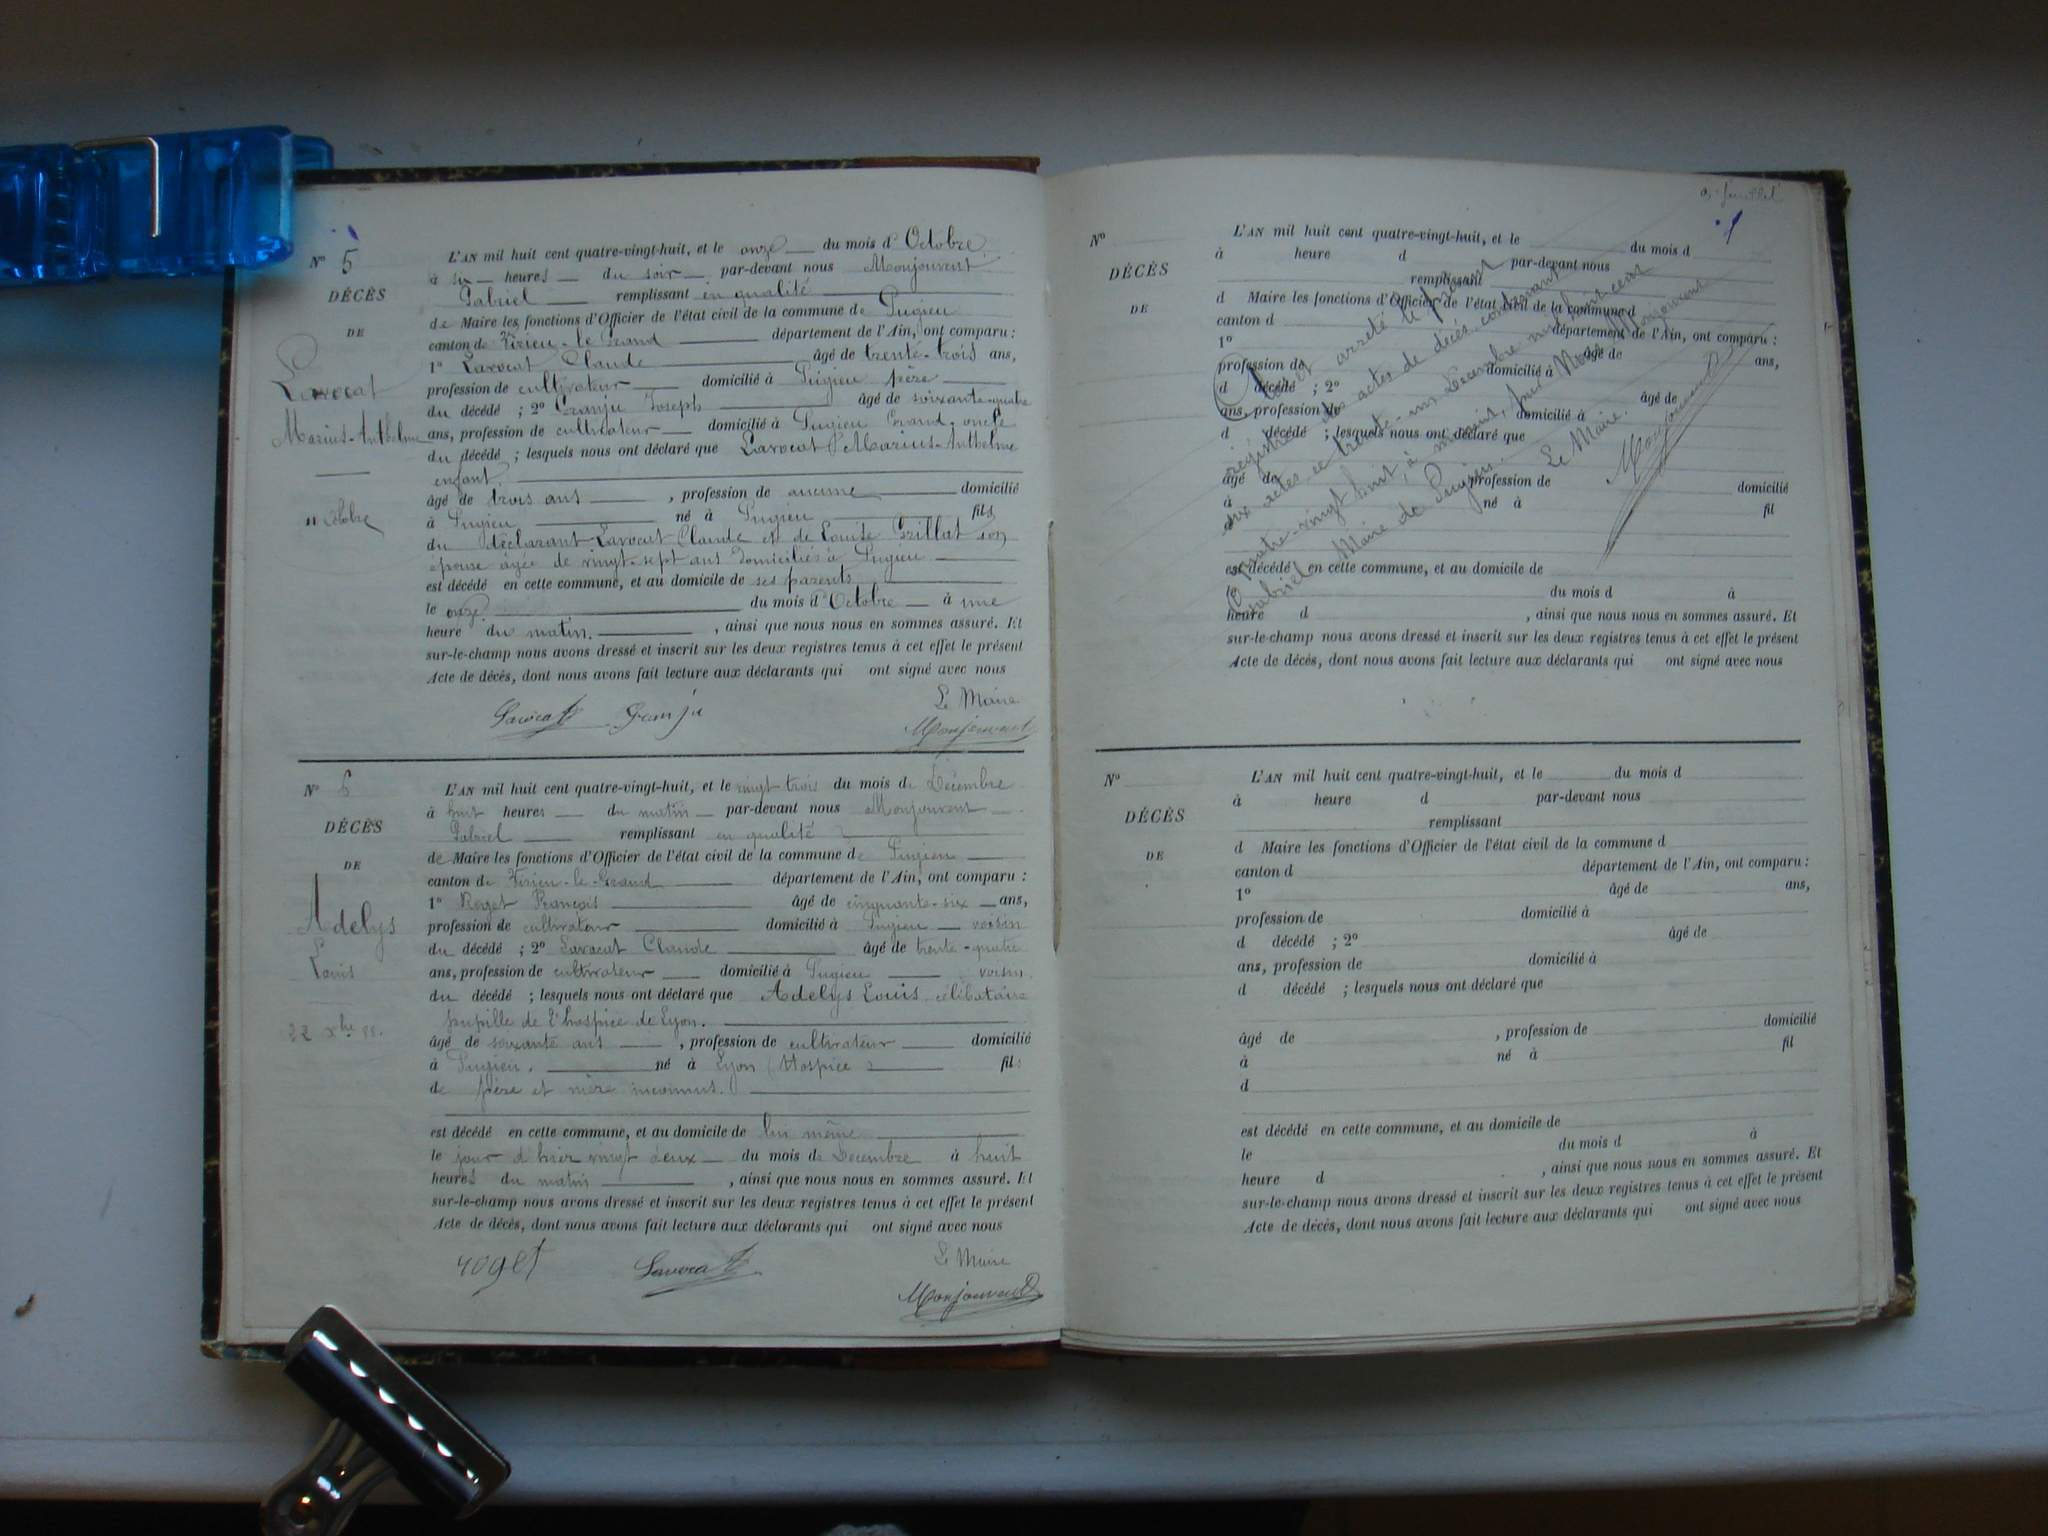 N° 5
DÉCÈS
DE
Lavocat
Marius-Anthelme
11 octobre
L'AN mil huit cent quatre-vingt-huit, et le onze du mois d'Octobre
à six heures du soir par-devant nous Monjouvent
Gabriel remplissant en qualité
de Maire les fonctions d'Officier de l'état civil de la commune de Pugieu
canton de Virieu-le-Grand département de l'Ain, ont comparu :
1° Lavocat Claude âgé de trente-trois ans,
profession de cultivateur domicilié à Pugieu père
du décédé ; 2° Granju Joseph âgé de soixante-quatre
ans, profession de cultivateur domicilié à Pugieu Grand-oncle
du décédé ; lesquels nous ont déclaré que Lavocat Marius-Anthelme
enfant.
âgé de trois ans , profession de aucune domicilié
à Pugieu né à Pugieu fils
du déclarant Lavocat Claude et de Louise Grillat son
épouse âgée de vingt-sept ans domiciliés à Pugieu
est décédé en cette commune, et au domicile de ses parents
le onze du mois d'Octobre à une
heure du matin. , ainsi que nous nous en sommes assuré. Et
sur-le-champ nous avons dressé et inscrit sur les deux registres tenus à cet effet le présent
Acte de décès, dont nous avons fait lecture aux déclarants qui ont signé avec nous
Le Maire
Lavocat Granju Monjouvent
N° 6
DÉCÈS
DE
Adelys
Louis
22 Xbre 88.
L'AN mil huit cent quatre-vingt-huit, et le vingt trois du mois de Décembre
à huit heures du matin par-devant nous Monjouvent
Gabriel remplissant en qualité
de Maire les fonctions d'Officier de l'état civil de la commune de Pugieu
canton de Virieu-le-Grand département de l'Ain, ont comparu :
1° Roget François âgé de cinquante-six ans,
profession de cultivateur domicilié à Pugieu voisin
du décédé ; 2° Lavocat Claude âgé de trente-quatre
ans, profession de cultivateur domicilié à Pugieu voisin.
du décédé ; lesquels nous ont déclaré que Adelys Louis célibataire
pupille de l'hospice de Lyon.
âgé de soixante ans , profession de cultivateur domicilié
à Pugieu. né à Lyon (Hospice) fils
de père et mère inconnus.
est décédé en cette commune, et au domicile de lui même
le jour d'hier vingt deux du mois de Décembre à huit
heures du matin , ainsi que nous nous en sommes assuré. Et
sur-le-champ nous avons dressé et inscrit sur les deux registres tenus à cet effet le présent
Acte de décès, dont nous avons fait lecture aux déclarants qui ont signé avec nous
Le Maire
roget Lavocat Monjouvent
feuillet
N°
DÉCÈS
DE
L'AN mil huit cent quatre-vingt-huit, et le du mois d
à heure d par-devant nous
remplissant
d Maire les fonctions d'Officier de l'état civil de la commune d
canton d département de l'Ain, ont comparu :
1° âgé de ans,
profession de domicilié à
d décédé ; 2° âgé de
ans, profession de domicilié à
d décédé ; lesquels nous ont déclaré que
âgé de , profession de domicilié
à né à fil
d
est décédé en cette commune, et au domicile de
le du mois d à
heure d , ainsi que nous nous en sommes assuré. Et
sur-le-champ nous avons dressé et inscrit sur les deux registres tenus à cet effet le présent
Acte de décès, dont nous avons fait lecture aux déclarants qui ont signé avec nous
Clos et arrêté le présent
registre des actes de décès contenant
six actes ce trente-un Décembre mil huit cent
quatre-vingt huit, à minuit, par Nous Monjouvent
Gabriel Maire de Pugieu.
Le Maire.
Monjouvent
N°
DÉCÈS
DE
L'AN mil huit cent quatre-vingt-huit, et le du mois d
à heure d par-devant nous
remplissant
d Maire les fonctions d'Officier de l'état civil de la commune d
canton d département de l'Ain, ont comparu :
1° âgé de ans,
profession de domicilié à
d décédé ; 2° âgé de
ans, profession de domicilié à
d décédé ; lesquels nous ont déclaré que
âgé de , profession de domicilié
à né à fil
d
est décédé en cette commune, et au domicile de
le du mois d à
heure d , ainsi que nous nous en sommes assuré. Et
sur-le-champ nous avons dressé et inscrit sur les deux registres tenus à cet effet le présent
Acte de décès, dont nous avons fait lecture aux déclarants qui ont signé avec nous